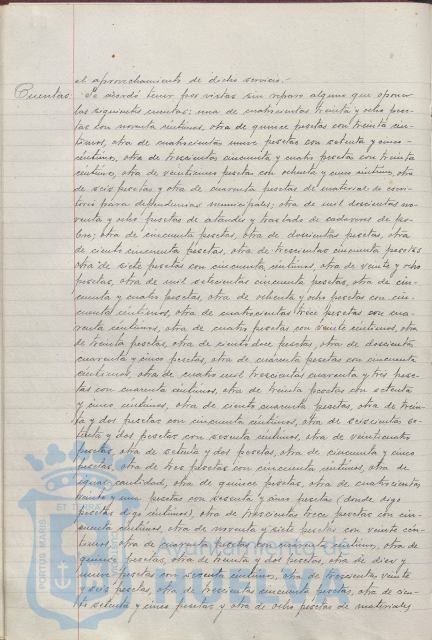 el aprovechamiento de dicho servicio.-
Cuentas. Se acordó tener por vistas sin reparo alguno que oponer
las siguientes cuentas: una de cuatrocientas treinta y ocho pese-
tas con noventa céntimos, otra de quince pesetas con treinta cén-
timos, otra de cuatrocientas nueve pesetas con setenta y cinco
céntimos, otra de trescientas cincuenta y cuatro pesetas con treinta
céntimos, otra de veintinueve pesetas con ochenta y cinco céntimos, otra
de seis pesetas y otra de cuarenta pesetas de material de escri-
torio para dependencias municipales; otra de mil doscientas no-
venta y ocho pesetas de ataudes y traslado de cadáveres de po-
bre; otra de cincuenta pesetas, otra de doscientas pesetas, otra
de ciento cincuenta pesetas, otra de trescientas cincuenta pesetas
otra de siete pesetas con cincuenta céntimos, otra de veinte y ocho
pesetas, otra de mil setecientas cincuenta pesetas, otra de cin-
cuenta y cuatro pesetas, otra de ochenta y ocho pesetas con cin-
cuenta céntimos, otra de cuatrocientas trece pesetas con cua-
renta céntimos, otra de cuatro pesetas con veinte céntimos, otra
de treinta pesetas, otra de ciento doce pesetas, otra de doscientas
cuarenta y cinco pesetas, otra de cuarenta pesetas con cincuenta
céntimos, otra de cuatro mil trescientas cuarenta y tres pese-
tas con cuarenta céntimos, otra de treinta pesetas con setenta
y cinco céntimos, otra de ciento cuarenta pesetas, otra de trein-
ta y dos pesetas con cincuenta céntimos, otra de seiscientas se-
tenta y dos pesetas con sesenta céntimos, otra de veinticuatro
pesetas, otra de setenta y dos pesetas, otra de cincuenta y cinco
pesetas, otra de tres pesetas con cincuenta céntimos, otra de
igual cantidad, otra de quince pesetas, otra de cuatrocientas
veinte y una pesetas con sesenta y cinco pesetas (donde digo
pesetas digo céntimos), otra de trescientas trece pesetas con cin-
cuenta céntimos, otra de noventa y siete pesetas con veinte cén-
timos, otra de cuarenta pesetas con cuarenta céntimos, otra de
quince pesetas, otra de treinta y dos pesetas, otra de diez y
nueve pesetas con sesenta céntimos, otra de trescientas veinte
y seis pesetas, otra de trescientas cincuenta pesetas, otra de cien-
to setenta y cinco pesetas y otra de ocho pesetas de materiales
PORTUS MARIS
ET TERRAE
Ayuntamiento de
HUELVA